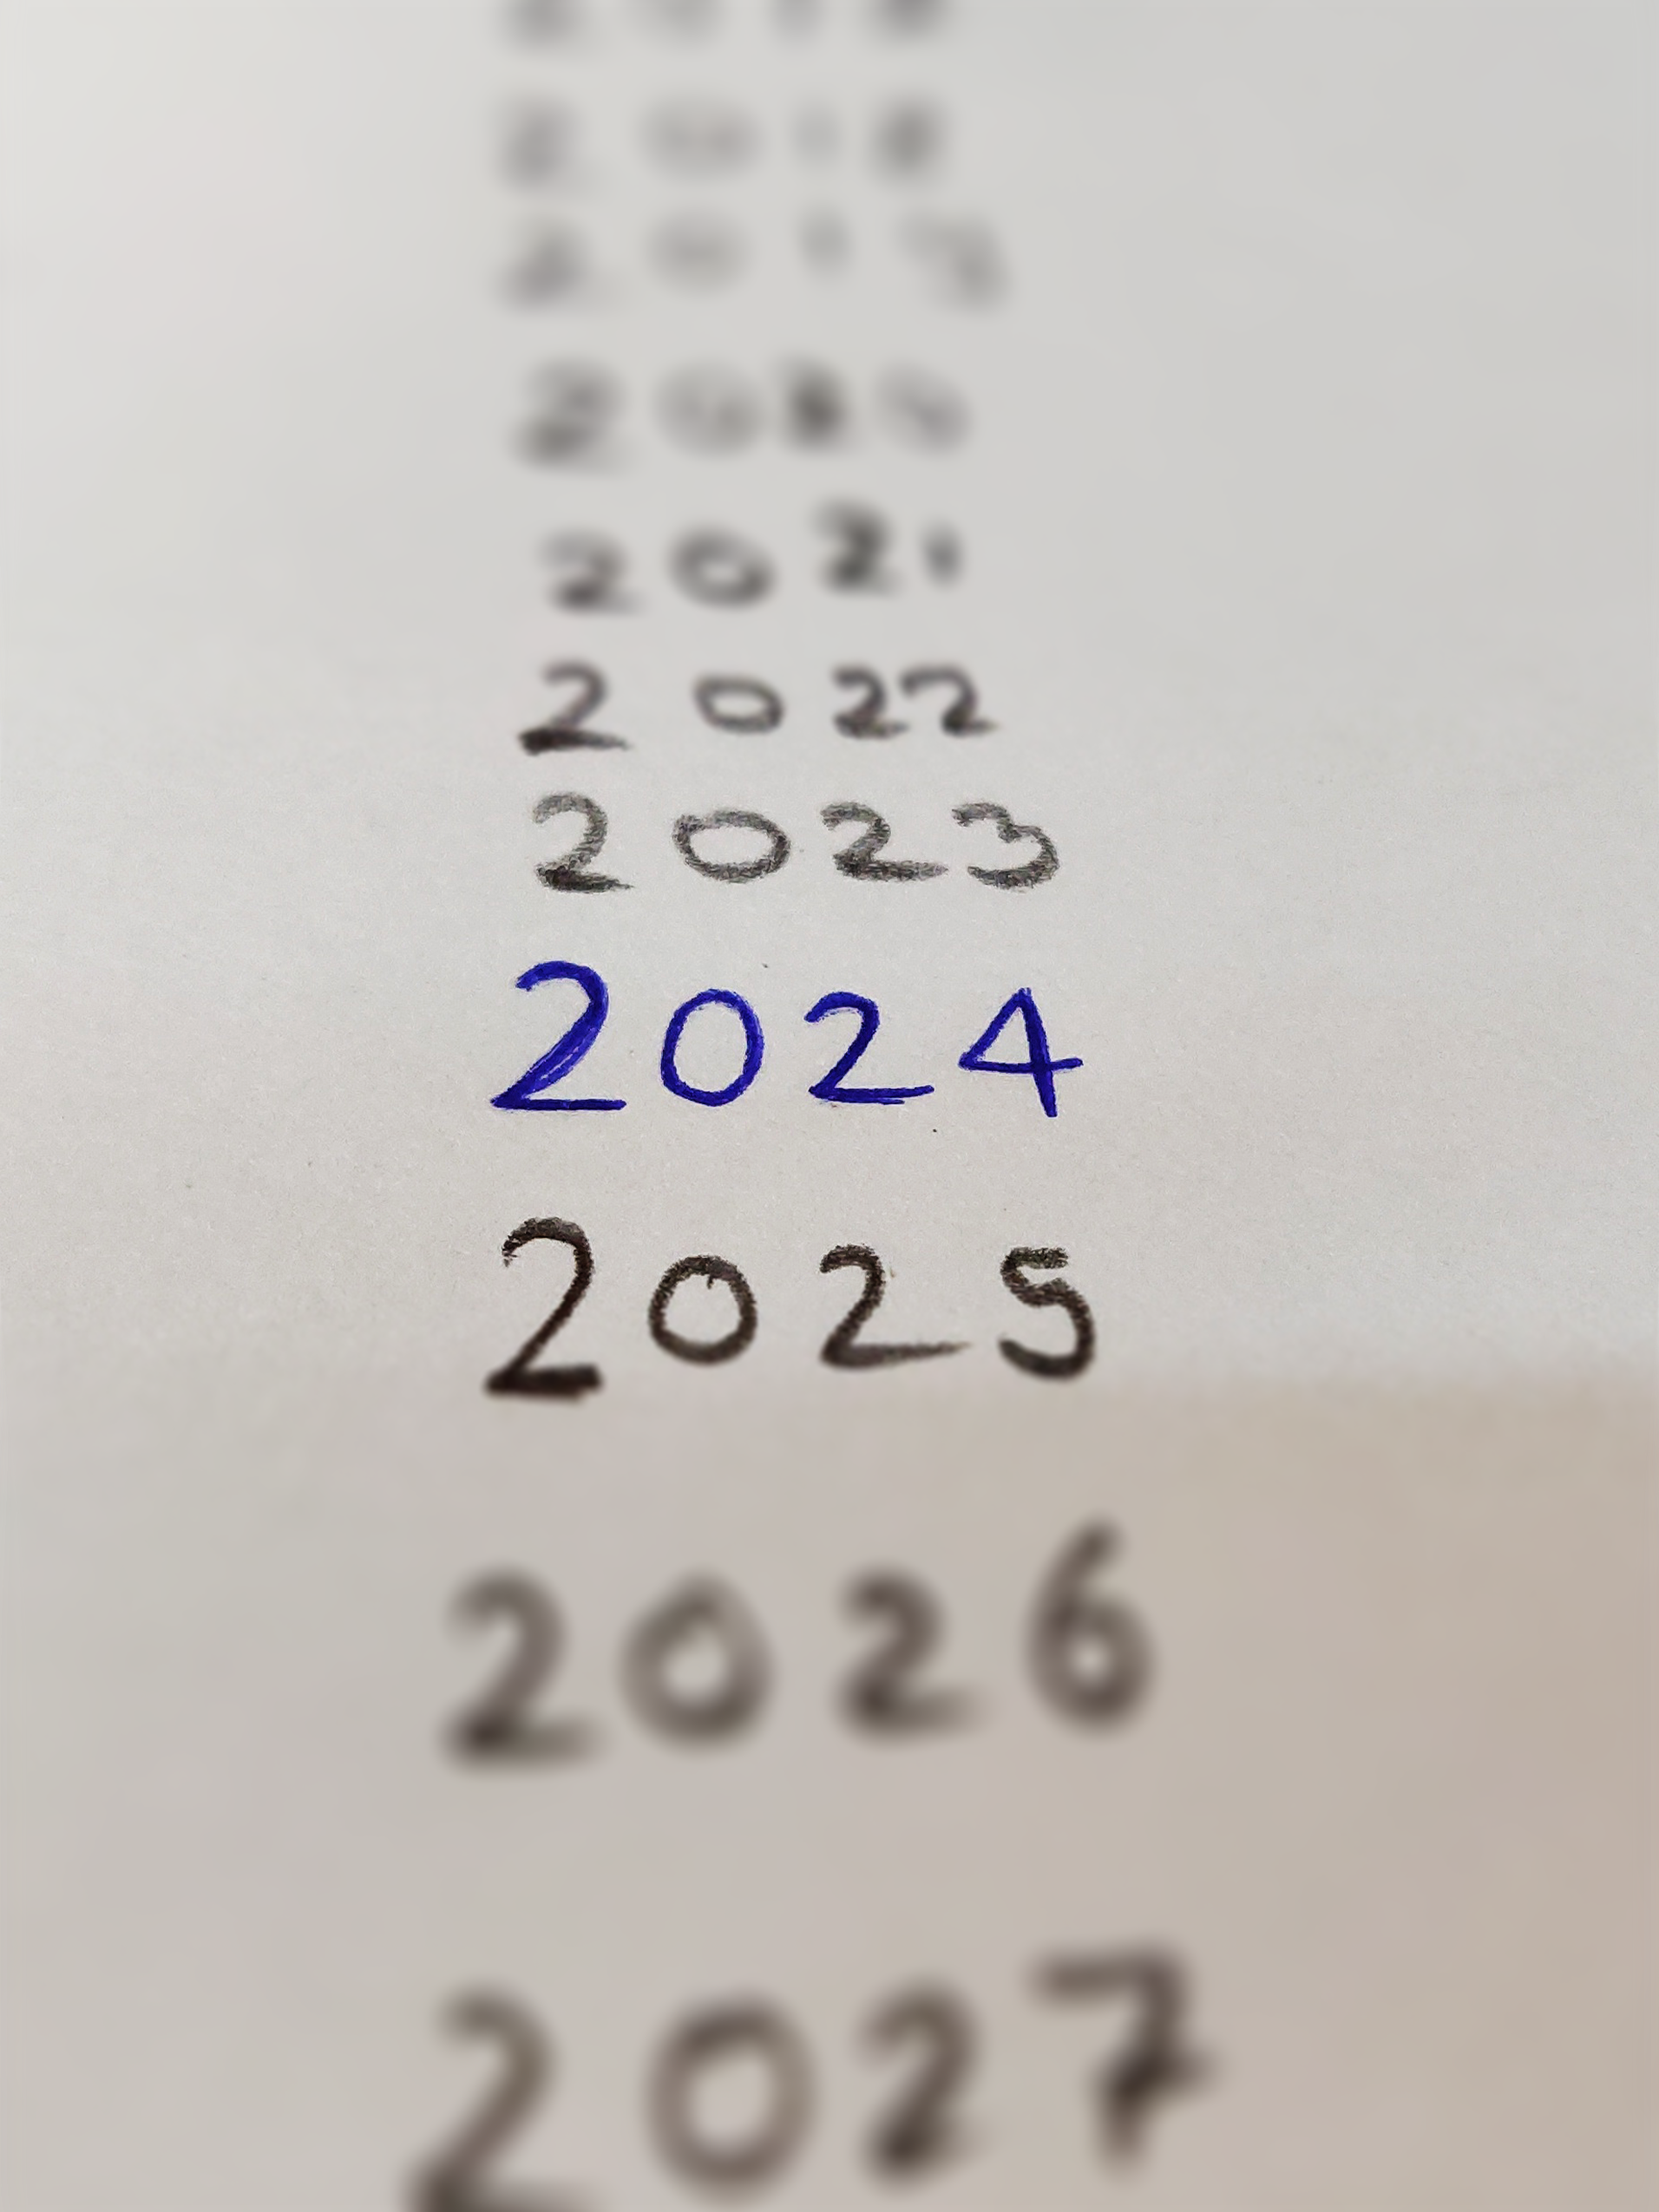 2018
2019
2020
2021
2022
2023
2024
2025
2026
2027